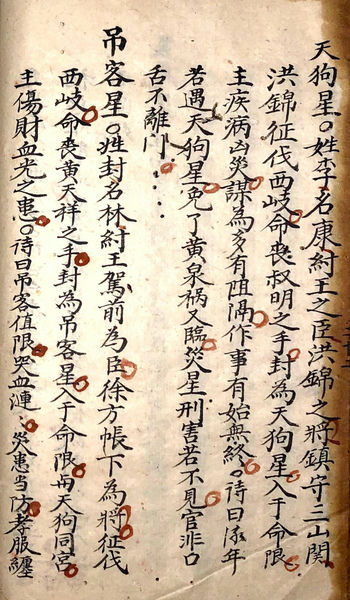 天狗星。姓李名康紂王之臣洪錦之將鎮守三山関
洪錦征伐西岐命喪叔明之手封為天狗星入于命限
主疾病凶災謀為多有阻滯作事有始無終。詩曰流年
若遇天狗星免了黄泉禍又臨災星刑害若不見官非口
舌不離門
吊客星。姓封名林紂王駕前為臣徐方帳下為將征伐
西岐命喪黄天祥之手封為吊客星入于命限與天狗同宮
主傷財血光之患。詩曰吊客值限哭血漣災患當防孝服纏